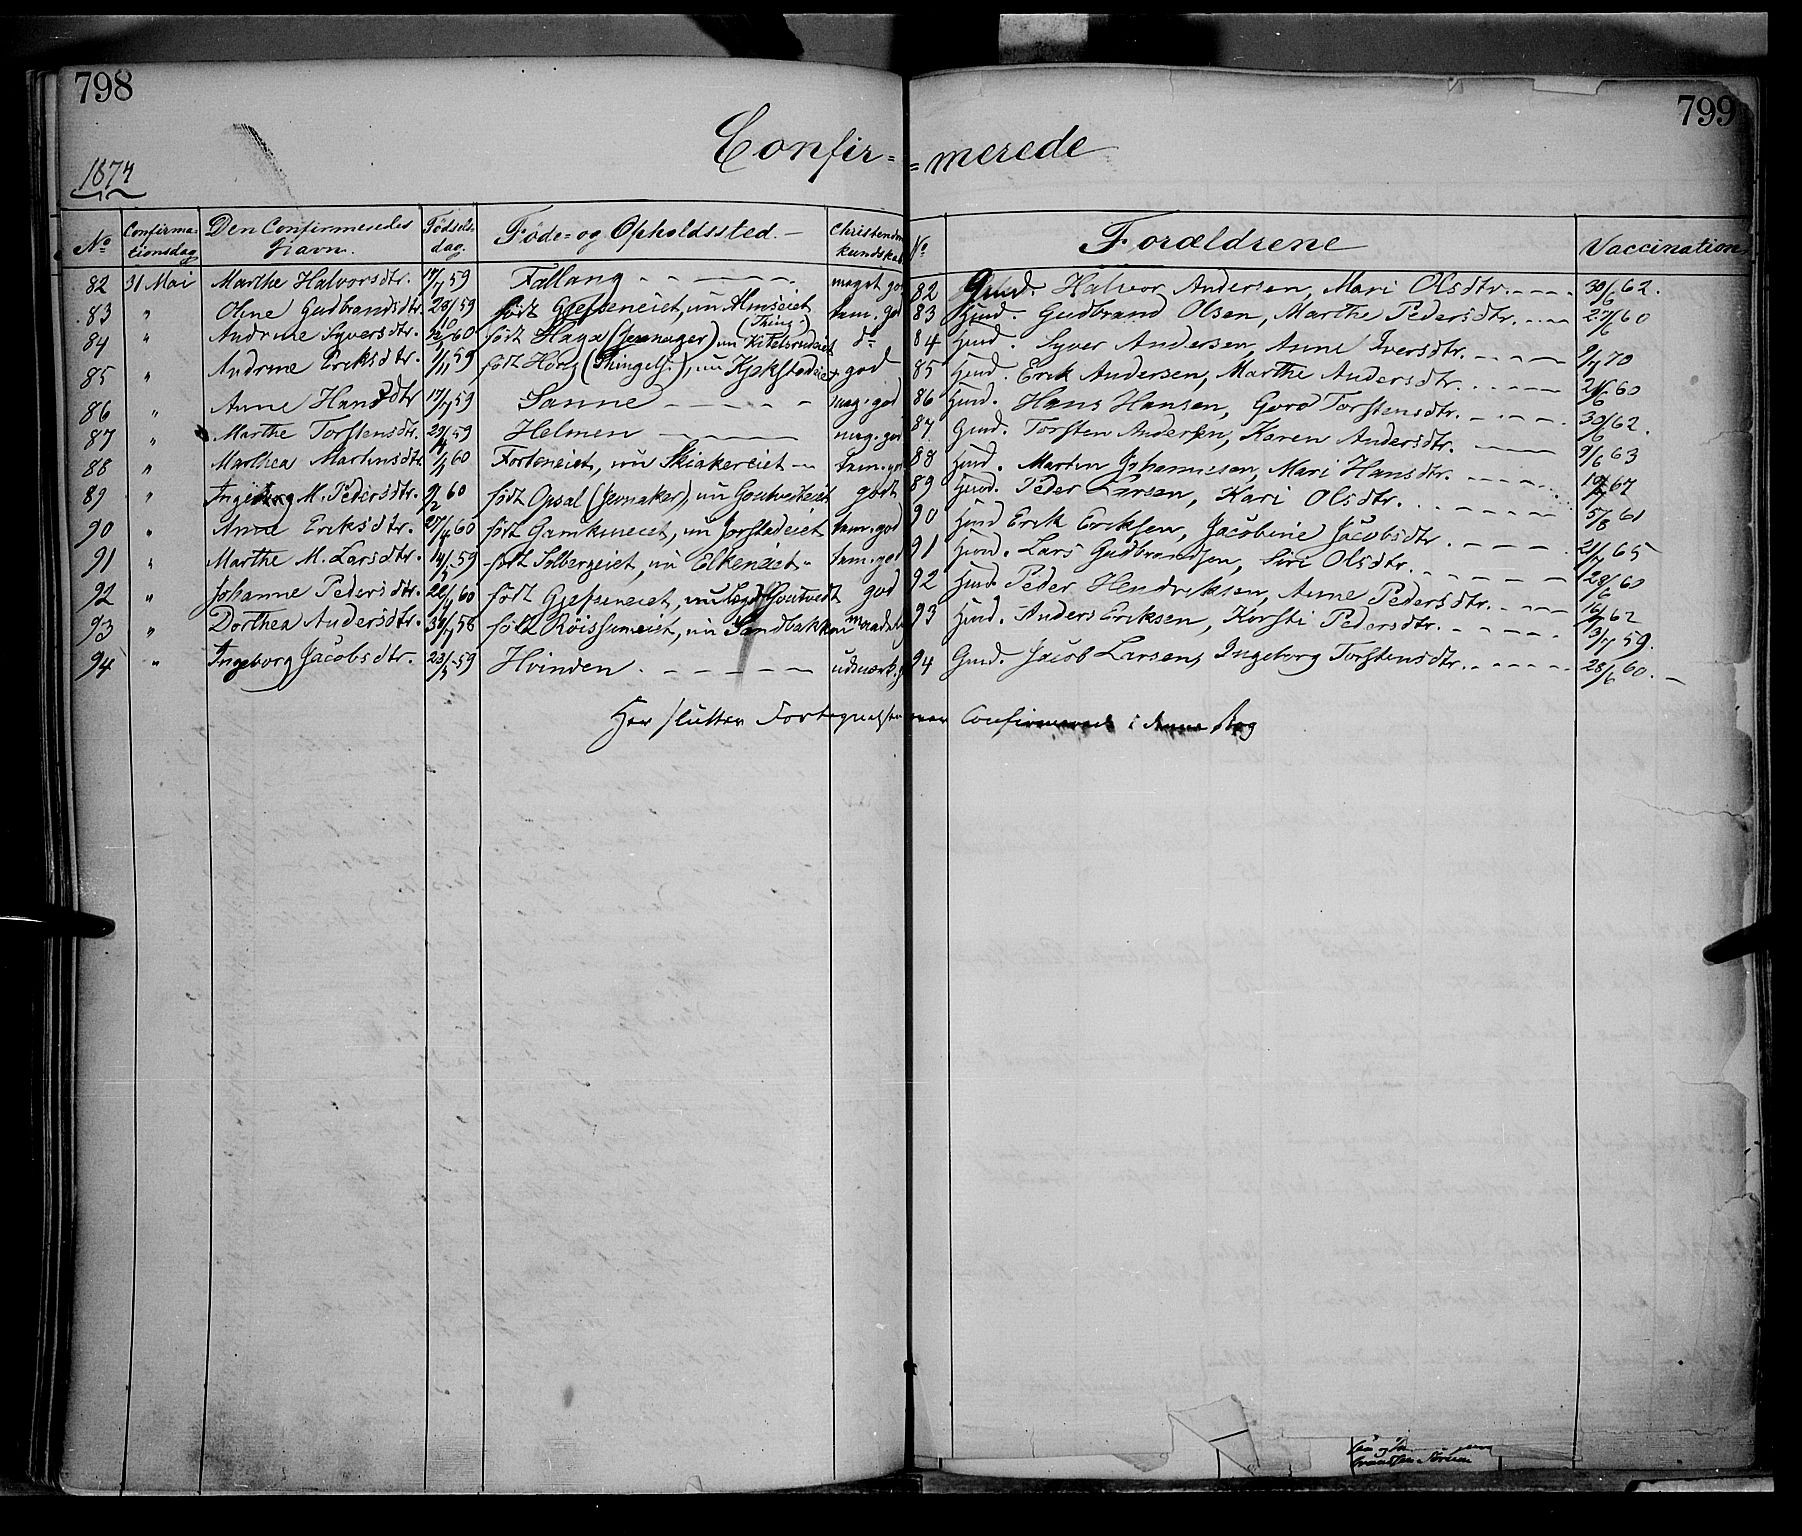 798
799
Confir= =merede
1874
No Confirmationsdag Den Confirmeredes Navn. Fødselsdag. Føde= og Opholdssted.- Christendomskundskab No Forældrene Vaccination
82 31 Mai Marthe Halvorsdtr. 17/7 59 Fallang - - - - - meget god 82 Gmd. Halvor Andersen, Mari Olsdtr. - - - 30/6 62.
83 " Oline Gudbrandsdtr. 59 født Gjefseneiet, nu tem. god 83 Huusmd. Gudbrand Olsen, Marthe Pedersdtr. - - - 60
84 " Andrine Syversdtr. 60 født Haga (Jevnager) nu (Thing) do 84 Huusmd. Syver Andersen, Anne Iversdtr. - - - 70
85 " Andrine Eriksdtr. 1/11 59 født Hørg (Thingels.), nu Kjokstadeiet god 85 Huusmd. Erik Andersen, Marthe Andersdtr. - - - 60
86 " Anne Hansdtr 17/7 59 Sanne - - - - meg. god 86 Huusmd. Hans Hansen, Goro Torstensdtr. - - - 30/6 62.
87 " Marthe Torstensdtr. 59 Helmen - - - - meg. god 87. Gmd. Torsten Andersen, Karen Andersdtr. - - - 9/6 63
88 " Marthea Martinsdtr. 60 Forteneiet, nu Skiakereiet - tem. god 88 Huusmd. Martin Johannesen, Mari Hansdtr. - - - 67
89 " Ingeborg M. Pedersdtr. 9/2 60 født Opsal (Jevnaker), nu Goutvedteiet godt 89 Huusmd. Peder Larsen, Kari Olsdtr. - - - 5/8 61
90 " Anne Eriksdtr. 27/4 60 født Gamkineiet, nu Jorstadeiet tem. god 90 Huusmd Erik Eriksen, Jacobine Jacobsdtr. - - - 21/7 65
91 " Marthe M. Larsdtr. 14/5 59 født Solbergeiet, nu Elkeneiet - tem. god 91 Huusmd. Lars Gudbrandsen, Siri Olsdtr. - - - 28/6 60
92 " Johanne Pedersdtr. 60 født Gjefseneiet, nu Goutvedt god 92 Huusmd. Peder Hendriksen, Anne Pedersdtr. - - - 62
93 " Dorthea Andersdtr. 58 født Røissumeiet, nu Sandbakken maadel. 93 Huusmd. Anders Eriksen, Kjersti Pedersdtr. - - - 3/7 59.
94 " Ingeborg Jacobsdtr. 23/5 59 Hvinden - - - - udmærk. g 94 Gmd. Jacob Larsen, Ingeborg Torstensdtr. - - - 28/6 60. -
Her slutter Fortegnelsen over Confirmerede i denne Bog